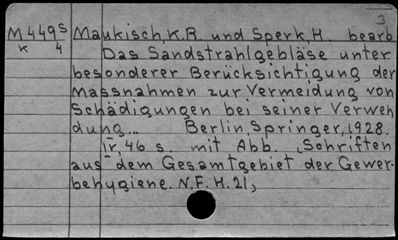 3
M449s Maukisch, K.R. und Sperk, H. bearb
K 4 Das Sandstrahlgebläse unter
besonderer Berücksichtigung der
Massnahmen zur Vermeidung von
Schädigungen bei seiner Verwen
dung... Berlin, Springer, 1928.
IV, 46 s. mit Abb. (Schriften
aus dem Gesamtgebiet der Gewer-
behygiene. N.F. H. 21)